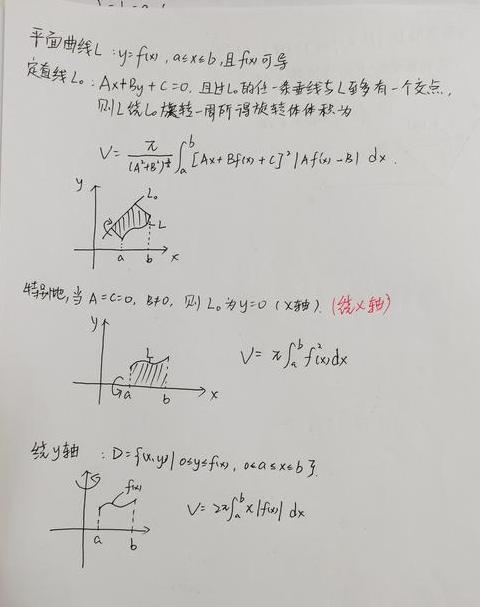 平面曲线L：y=f(x)，a≤x≤b，且f(x)可导
定直线L₀：Ax+By+C=0，且过L₀的任一条垂线与L至多有一个交点，
则L绕L₀旋转一周所得旋转体体积为
V= π/(A²+B²)^{3/2} ∫_a^b [Ax+Bf(x)+C]² |Af'(x)-B| dx.
y
L₀
L
a b x
特别地，当A=C=0，B≠0，则L₀为y=0（x轴）.（绕x轴）
y
L
a b x
V= π∫_a^b f²(x)dx
绕y轴：D={(x,y)|0≤y≤f(x)，0≤a≤x≤b}.
f(x)
a b
V=2π∫_a^b x|f(x)| dx